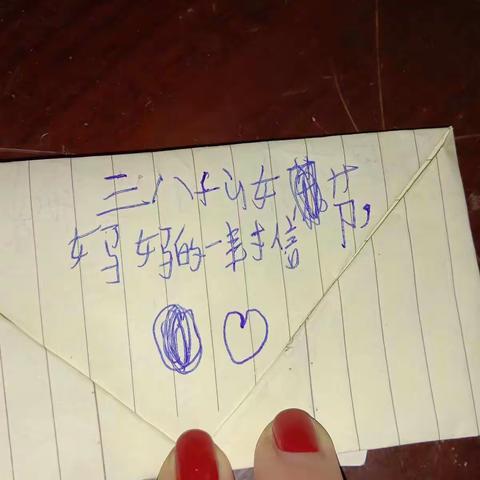 三八妇女节,
妈妈的一封信